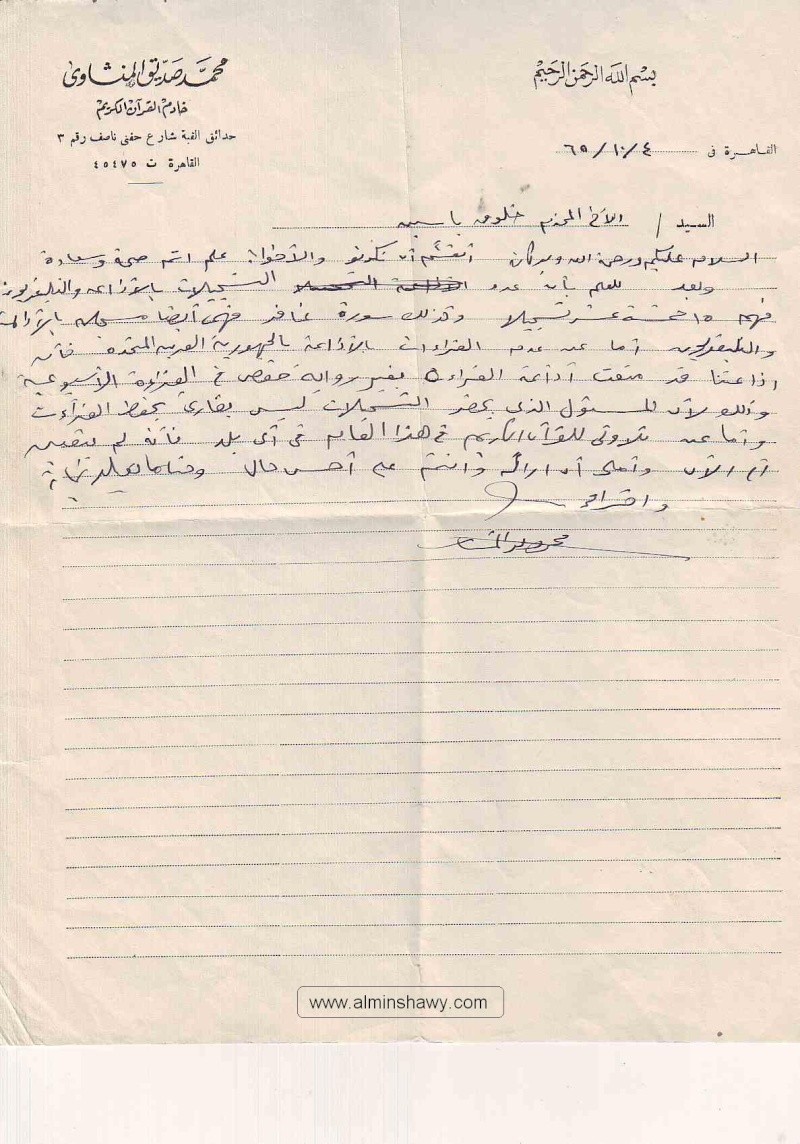 بسم الله الرحمن الرحيم
محمد صديق المنشاوى
خادم القرآن الكريم
حدائق القبة شارع حفنى ناصف رقم ٣
القاهرة ت ٤٥٤٧٥
القاهرة فى ٤ /١٠/ ٦٥
السيد / الأخ المحترم خلوق ياسين
السلام عليكم ورحمة الله وبركاته أن تكونو والأخوان على اتم صحة وسعادة
وبعد للعلم بأن عدد التسجيلات بالأذاعة والتليفزيون
فهم ١٥ خمسة عشر تسجيلا وكذلك سورة غافر فهى أيضا مسجله بالأذاعة
والتليفزيون أما عن عدم القراءات بالأذاعة بالجمهورية العربية المتحدة فأنه
اذاعتنا قد منعت أذاعة القراءة بغير رواية حفص فى القراءة الأسبوعية
وذلك لأن المسئول الذى يحضر التسجيلات ليس بقارئ يحفظ القراءات
وأما عن تلاوتى للقرآن الكريم فى هذا العام فى أى بلد فأنه لم يتقرر
الآن وأملى أن أراكم وأنتم على أحسن حال وختاما
واحترامى
www.alminshawy.com